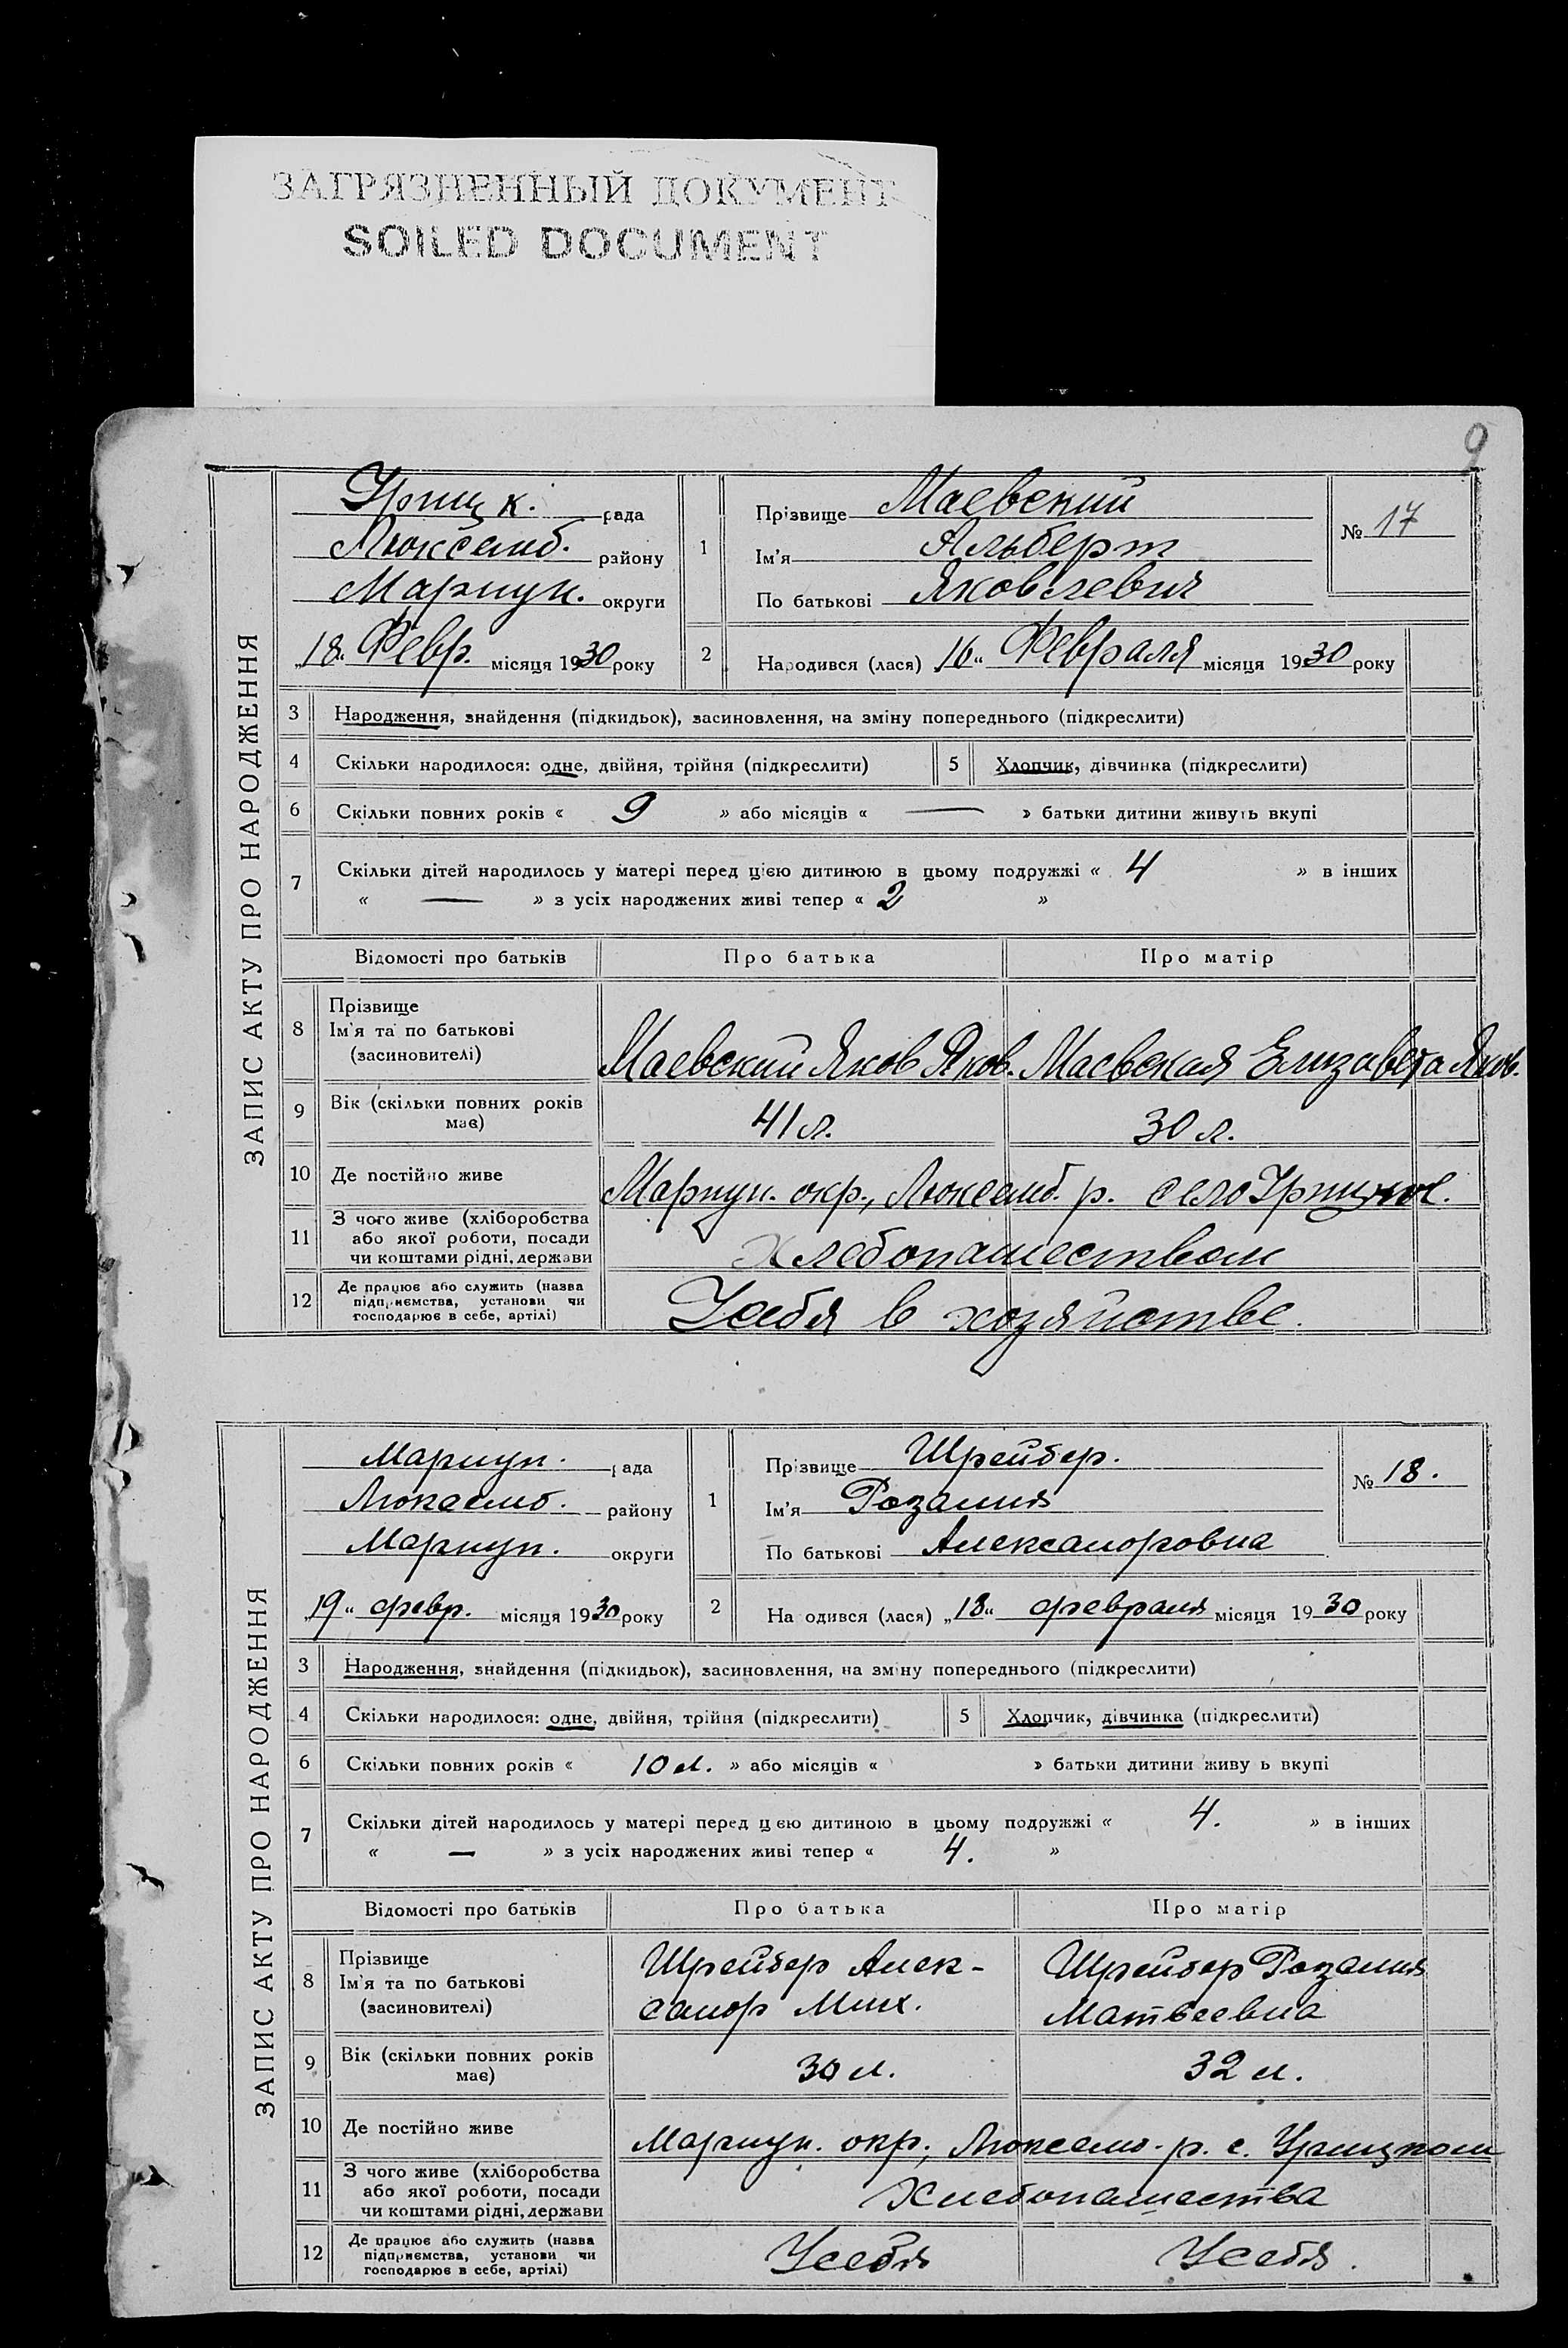 ЗАГРЯЗНЕННЫЙ ДОКУМЕНТ
SOILED DOCUMENT
9
ЗАПИС АКТУ ПРО НАРОДЖЕННЯ
Урицк. рада
Люксемб. району
Мариуп. округи
„18“ Февр. місяця 1930 року
1
Прізвище Маевский
Ім'я Альберт
По батькові Яковлевич
№ 17
2
Народився (лася) „16“ Февраля місяця 1930 року
3 Народження, знайдення (підкидьок), засиновлення, на зміну попереднього (підкреслити)
4 Скільки народилося: одне, двійня, трійня (підкреслити) 5 Хлопчик, дівчинка (підкреслити)
6 Скільки повних років « 9 » або місяців « — » батьки дитини живуть вкупі
7 Скільки дітей народилось у матері перед цією дитиною в цьому подружжі « 4 » в інших
« — » з усіх народжених живі тепер « 2 »
Відомості про батьків Про батька Про матір
8 Прізвище
Ім'я та по батькові
(засиновителі)
Маевский Яков Яков. Маевская Елизавета Яков.
9 Вік (скільки повних років
має)
41 л. 30 л.
10 Де постійно живе Мариуп. окр., Люксемб. р. село Урицкое.
11 З чого живе (хліборобства
або якої роботи, посади
чи коштами рідні, держави
Хлебопашеством
12 Де працює або служить (назва
підприємства, установи чи
господарює в себе, артілі)
У себя в хозяйстве.
ЗАПИС АКТУ ПРО НАРОДЖЕННЯ
Мариуп. рада
Люксемб. району
Мариуп. округи
„19“ февр. місяця 1930 року
1
Прізвище Шрейбер.
Ім'я Розалия
По батькові Александровна
№ 18.
2
На одився (лася) „18“ февраля місяця 1930 року
3 Народження, знайдення (підкидьок), засиновлення, на зміну попереднього (підкреслити)
4 Скільки народилося: одне, двійня, трійня (підкреслити) 5 Хлопчик, дівчинка (підкреслити)
6 Скільки повних років « 10 л. » або місяців « » батьки дитини живу ь вкупі
7 Скільки дітей народилось у матері перед цею дитиною в цьому подружжі « 4. » в інших
« — » з усіх народжених живі тепер « 4. »
Відомості про батьків Про батька Про матір
8 Прізвище
Ім'я та по батькові
(засиновителі)
Шрейбер Алек-
сандр Мих.
Шрейбер Розалия
Матвеевна
9 Вік (скільки повних років
має)
30 л. 32 л.
10 Де постійно живе Мариуп. окр., Люксемб. р. с. Урицком
11 З чого живе (хліборобства
або якої роботи, посади
чи коштами рідні, держави
Хлебопашества
12 Де працює або служить (назва
підприємства, установи чи
господарює в себе, артілі)
У себя У себя.